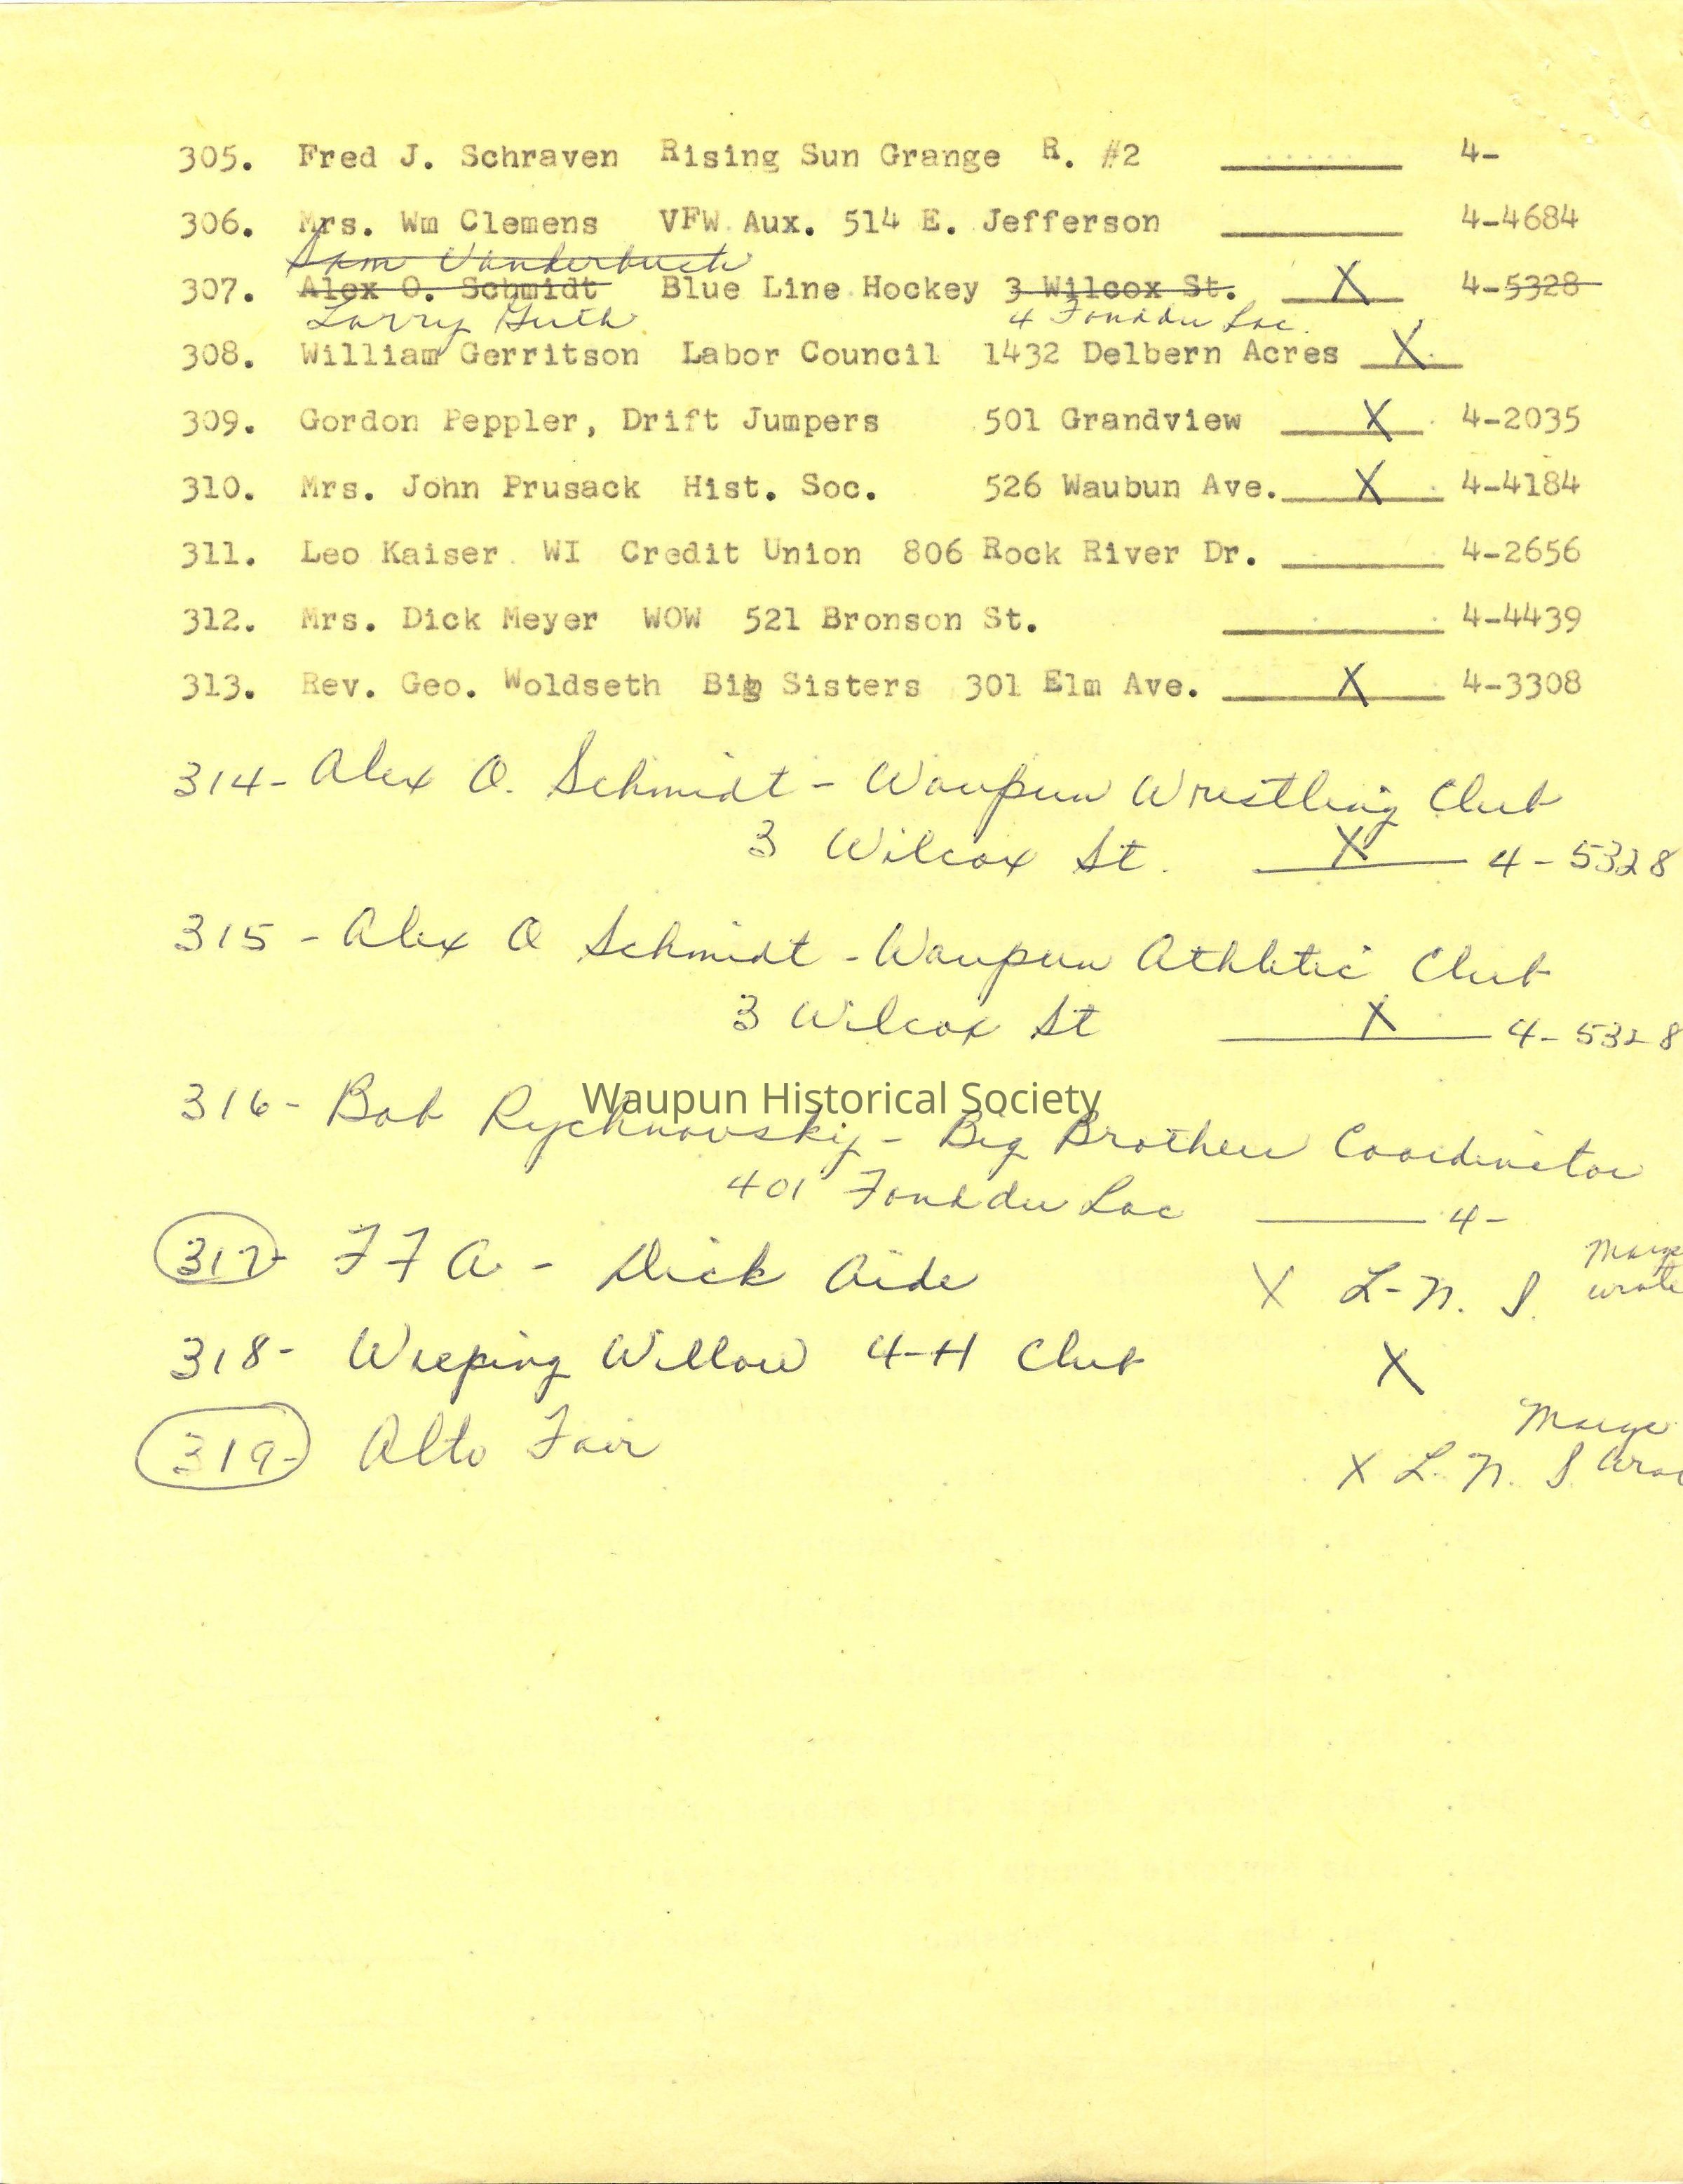 305. Fred J. Schraven Rising Sun Grange R. #2 ______ 4-
306. Mrs. Wm Clemens VFW Aux. 514 E. Jefferson ______ 4-4684
Sam Vanderbush
307. Alex O. Schmidt Blue Line Hockey 3 Wilcox St. X 4-5328
Larry Guth 4 Fond du Lac.
308. William Gerritson Labor Council 1432 Delbern Acres X
309. Gordon Peppler, Drift Jumpers 501 Grandview X 4-2035
310. Mrs. John Prusack Hist. Soc. 526 Waubun Ave. X 4-4184
311. Leo Kaiser WI Credit Union 806 Rock River Dr. ______ 4-2656
312. Mrs. Dick Meyer WOW 521 Bronson St. ______ 4-4439
313. Rev. Geo. Woldseth Big Sisters 301 Elm Ave. X 4-3308
314- Alex O. Schmidt - Waupun Wrestling Club
3 Wilcox St. X 4-5328
315 - Alex O Schmidt - Waupun Athletic Club
3 Wilcox St X 4-5328
Waupun Historical Society
316- Bob Rychnovsky - Big Brothers Coordinator
401 Fond du Lac ______ 4-
Marge
317- FFA - Dick Aide X L-N. S. wrote
318- Weeping Willow 4-H Club X
Marge
319- Alto Fair X L. N. S